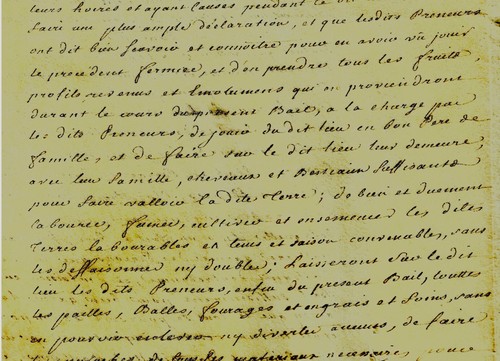 leurs hoires et ayant causes pendant le
faire une plus ample déclaration, et que lesdits Preneurs
ont dit bien sçavoir et connoitre pour en avoir vû jouir
le précédent fermier, et d'en prendre tous les fruits,
profits revenus et Emolumens qui en proviendront
durant le cours du present Bail, a la charge par
les dits Preneurs, de jouir du dit lieu en bon Pere de
famille, et de faire sur le dit lieu leur demeure,
avec leur famille, chevaux et Bestiaux suffisants
pour faire valloir la dite Terre; de bien et duement
labourer, fumer, cultiver et ensemencer les dites
Terres labourables en tems et saison convenables, sans
les dessaisonner ny doubler; Laisseront sur le dit
lieu les dits Preneurs, enfin du present Bail, touttes
les pailles, Balles, fourages et engrais et foins, sans
en pouvoir enlever ny divertir aucuns, de faire
materiaux necessaires,